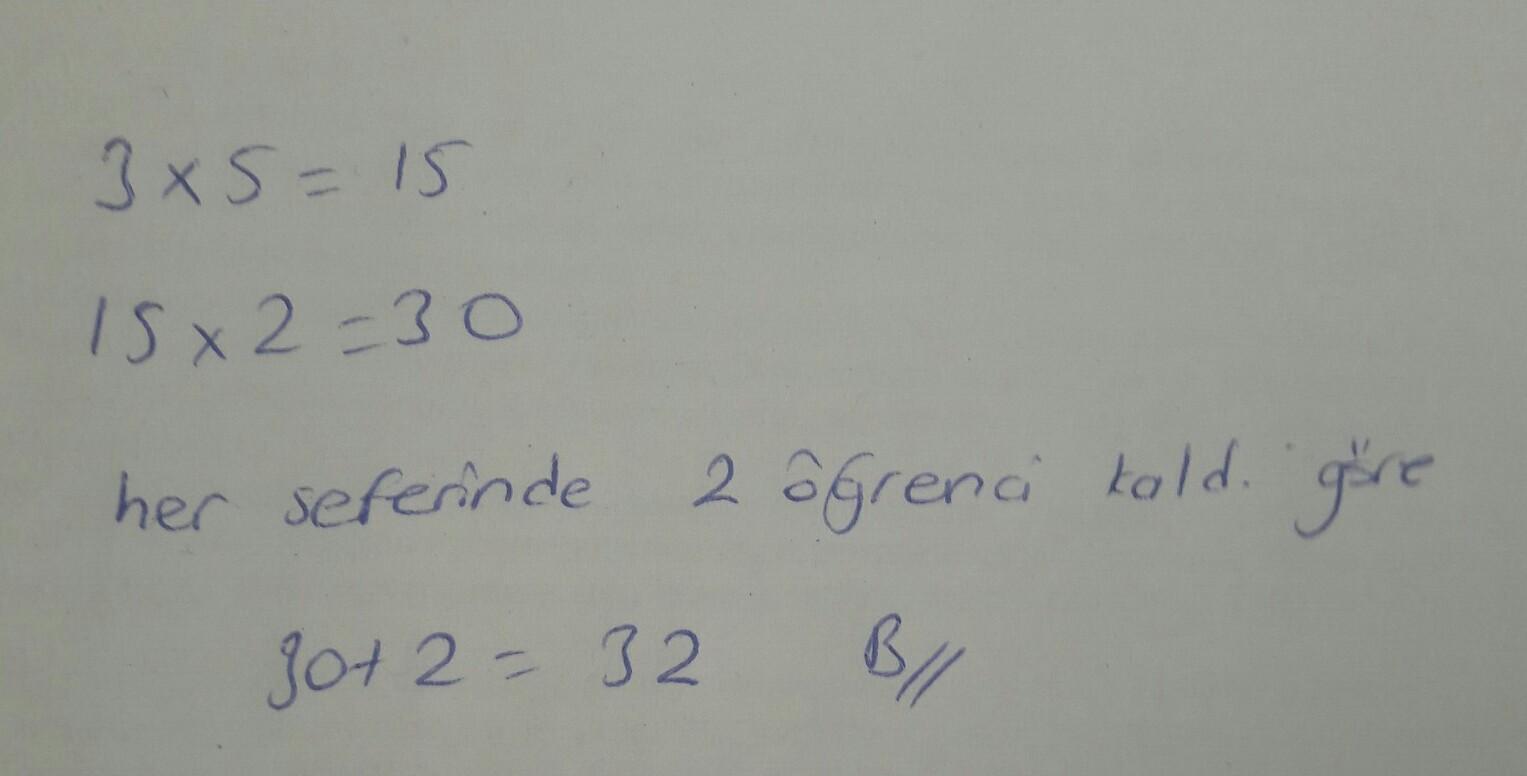 3 x 5 = 15
15 x 2 = 30
her seferinde 2 öğrenci kald. göre
30+2 = 32 B//